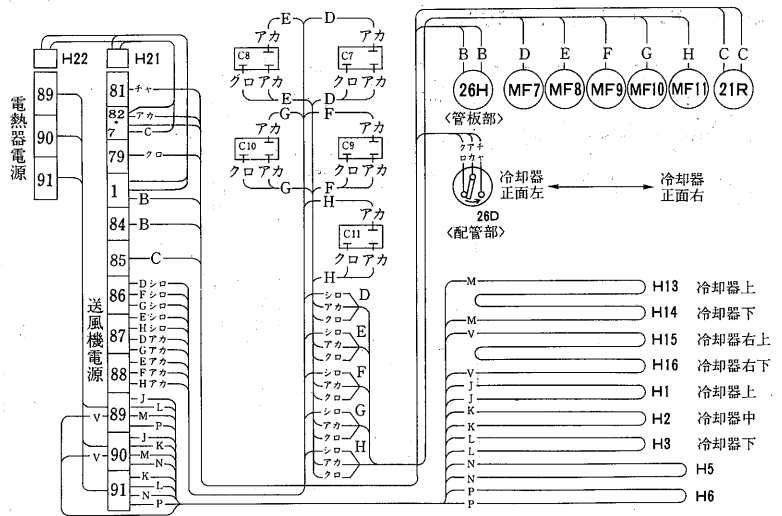 H22
H21
89
90
91
電熱器電源
81
チャ
82
7
アカ
C
79
クロ
1
B
84
B
85
C
86
Dシロ
Fシロ
Gシロ
87
Eシロ
Hシロ
Dアカ
Gアカ
88
Eアカ
Fアカ
Hアカ
送風機電源
89
J
L
V
M
P
90
J
K
V
M
N
91
K
L
N
P
E
D
アカ
アカ
C8
C7
クロ アカ
クロ アカ
E
D
G
F
アカ
アカ
C10
C9
クロ アカ
クロ アカ
G
F
H
アカ
C11
クロ アカ
H
シロ
アカ
クロ
D
シロ
アカ
クロ
E
シロ
アカ
クロ
F
シロ
アカ
クロ
G
シロ
アカ
クロ
H
B B D E F G H C C
26H MF7 MF8 MF9 MF10 MF11 21R
<管板部>
クロ アカ チャ
26D
<配管部>
冷却器
正面左
冷却器
正面右
M
H13 冷却器上
H14 冷却器下
M
V
H15 冷却器右上
H16 冷却器右下
V
J
H1 冷却器上
J
K
H2 冷却器中
K
L
H3 冷却器下
L
N
H5
N
P
H6
P